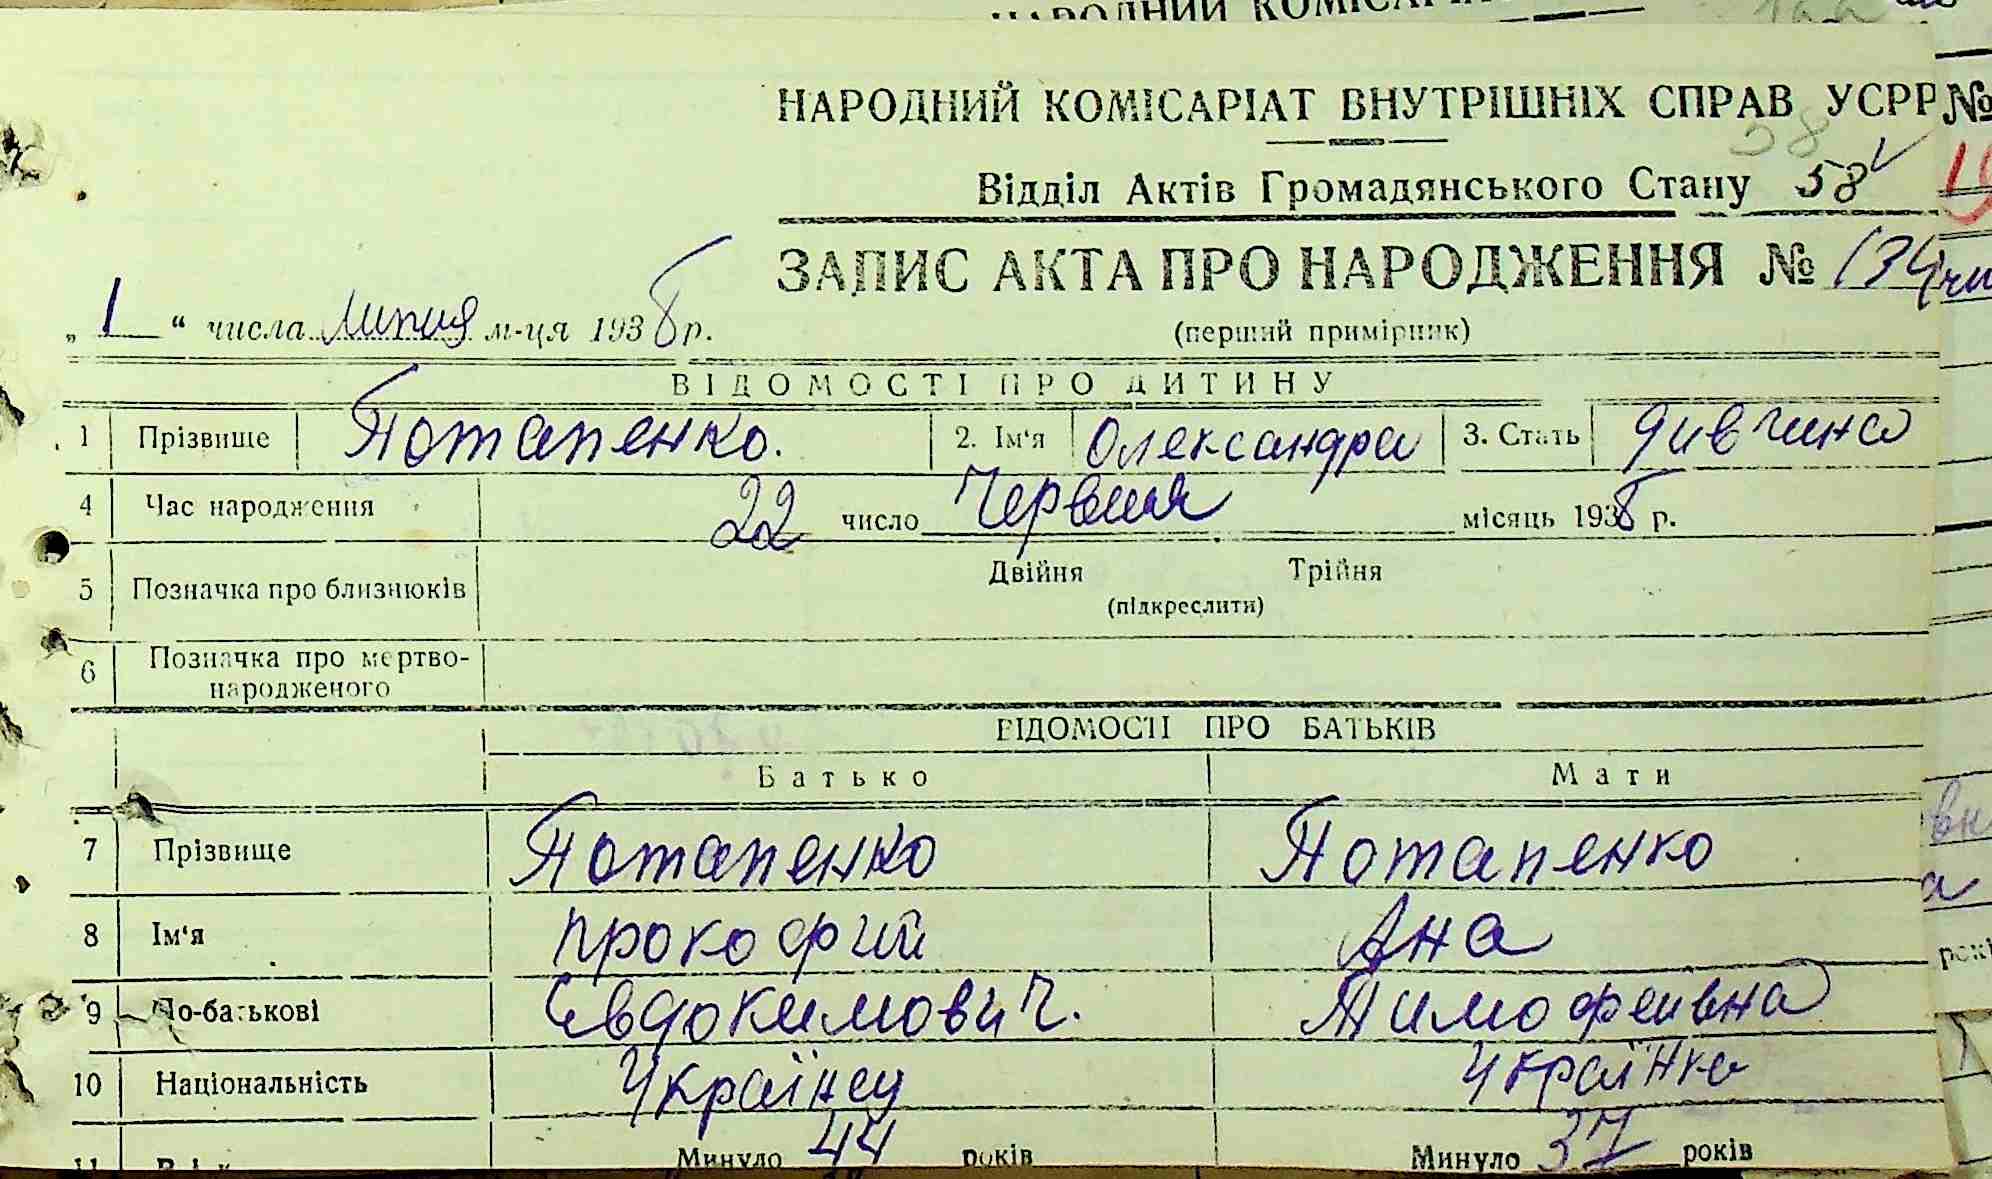 НАРОДНИЙ КОМІСАРІАТ ВНУТРІШНІХ СПРАВ УСРР
38
Відділ Актів Громадянського Стану 58
ЗАПИС АКТА ПРО НАРОДЖЕННЯ № 134
„ 1 “ числа липня м-ця 1938 р.
(перший примірник)
ВІДОМОСТІ ПРО ДИТИНУ
1 Прізвище Потапенко. 2. Ім'я Олександра 3. Стать дивчина
4 Час народження 22 число Червня місяць 1938 р.
5 Позначка про близнюків Двійня Трійня
(підкреслити)
6 Позначка про мертво-
народженого
ВІДОМОСТІ ПРО БАТЬКІВ
Батько Мати
7 Прізвище Потапенко Потапенко
8 Ім'я Прокофий Ана
9 По-батькові Євдокимович. Тимофеивна
10 Національність Українец Українка
11 Вік Минуло 44 років Минуло 37 років